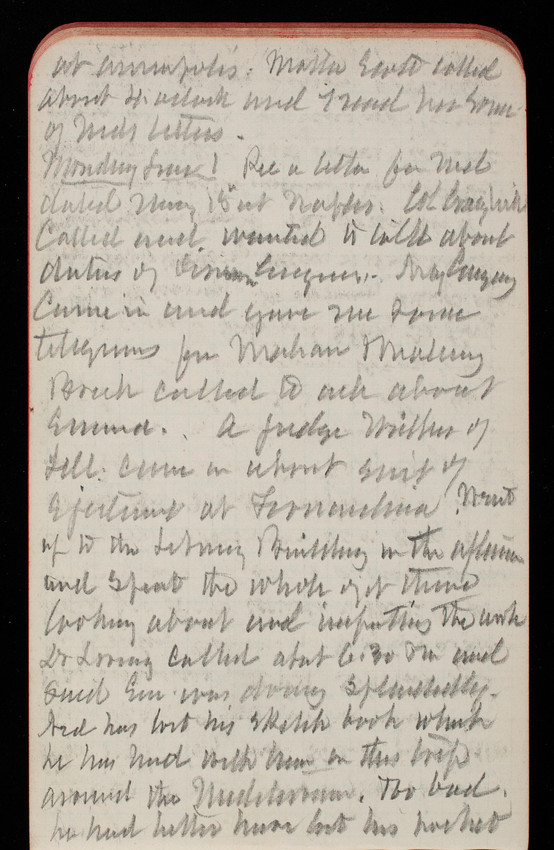 at annapolis. Motta Scott called
about 4 oclock and I read her some
of Neds letters.
Monday June 1 Rec a letter from Ned
dated May 18 at Naples. Col Craighill
Called and wanted to talk about
duties of Division Engineers. Maj Gregory
Came in and gave me some
telegrams for Mahan
Breck called to ask about
Emma. A Judge of
Ills. came in about suit of
Ejectment at Fernandina. Went
up to the Library Building in the afternoon
and spent the whole of it there
looking about and inspecting the work
Dr Loring called about 6.30 Pm and
said Em was doing splendidly.
Ned has lost his sketch book which
he has had with him on this trip
around the Mediterranean. Too bad.
he had better have lost his pocket